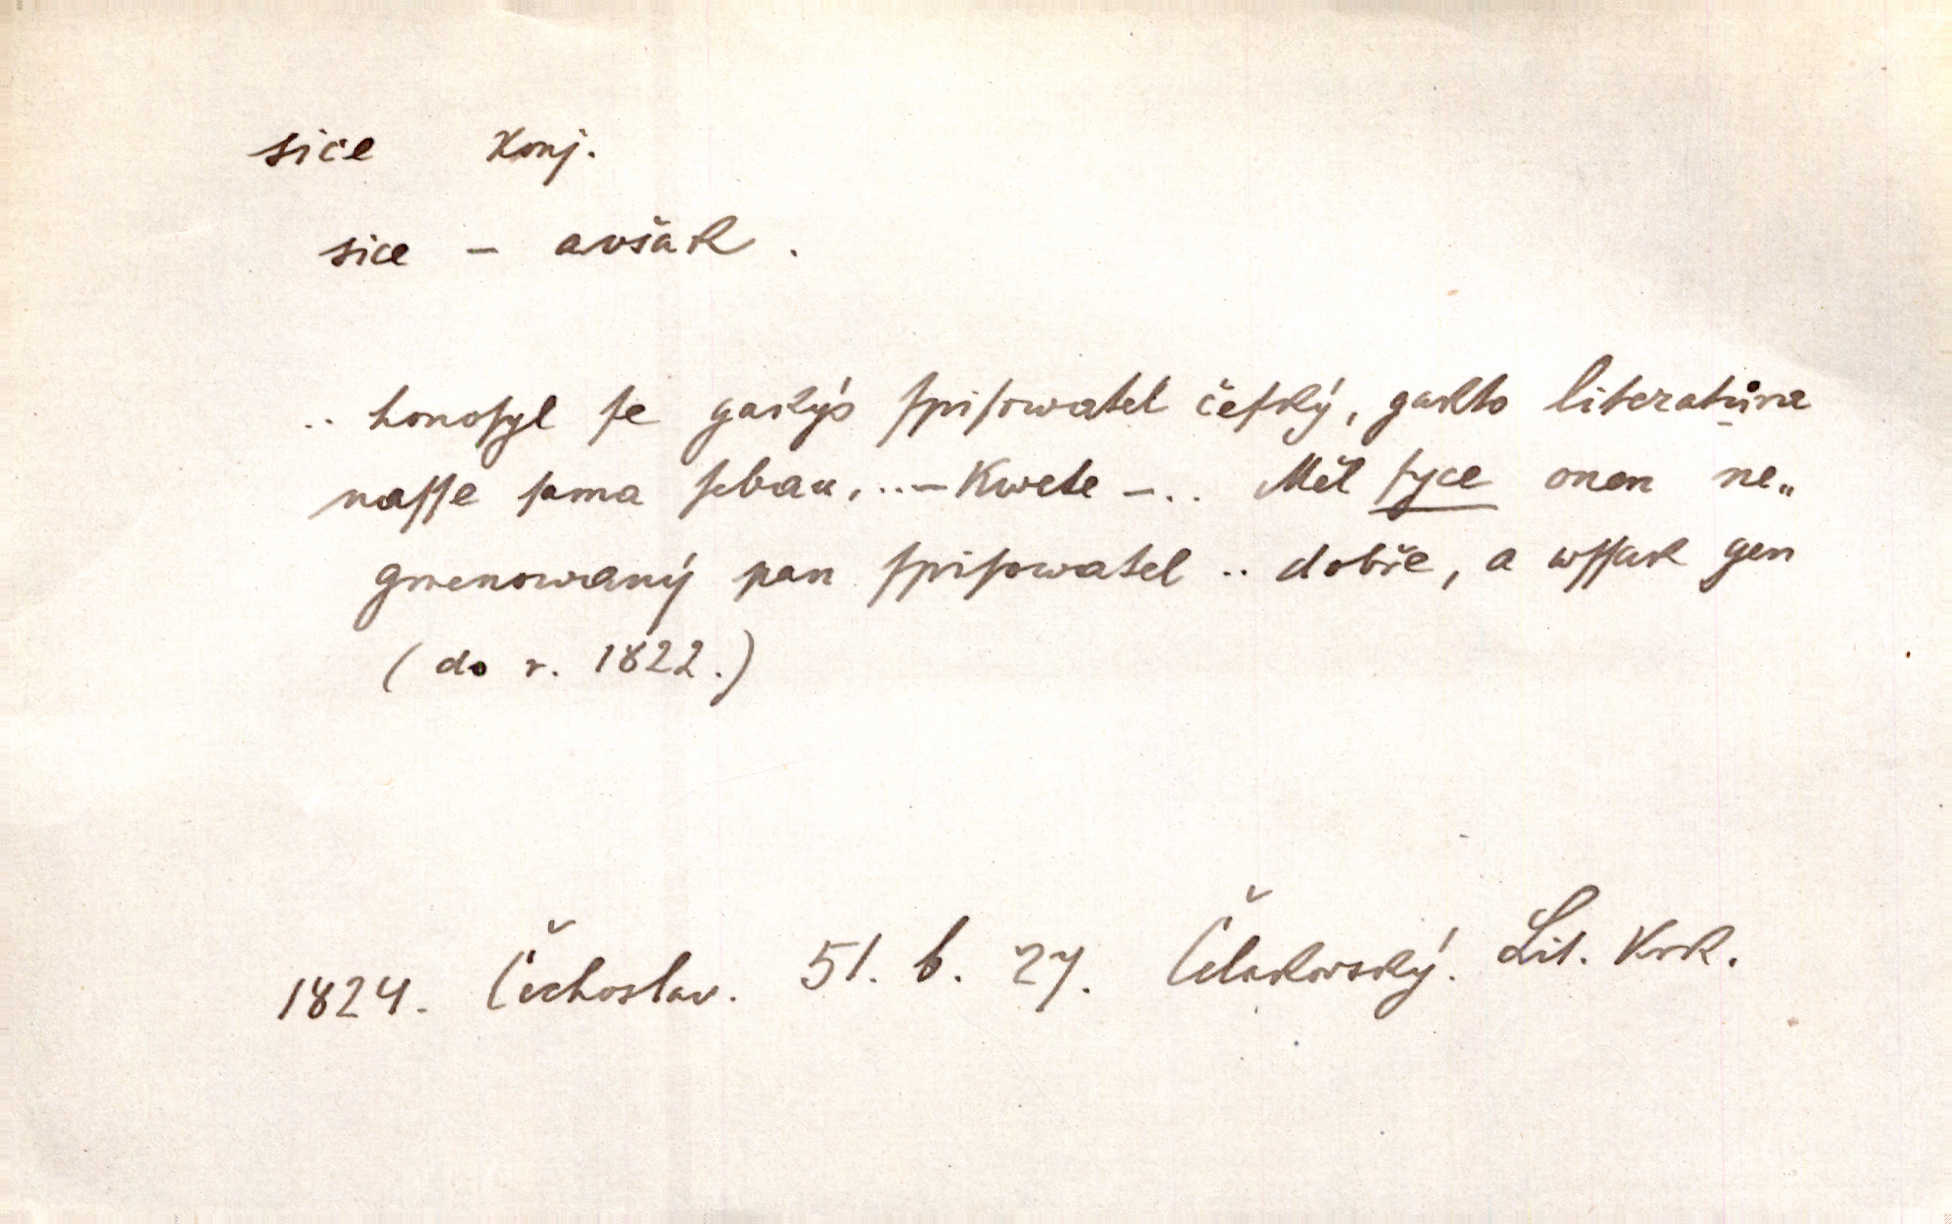 sice konj.
sice – avšak .
.. honoſyl ſe gakýs ſpiſowatel čeſký, gakto literatůra
naſſe ſama ſebau, .. – kwete – .. Měl ſyce onen ne„
gmenowaný pan ſpiſowatel .. dobře, a wſſak gen
( do r. 1822.)
1824. Čechoslav. 51. b. 27. Čelakovský. Lit. Krk.